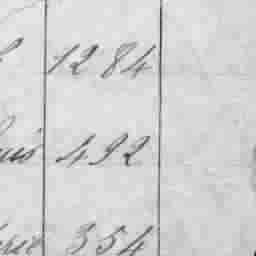 1284
492
354